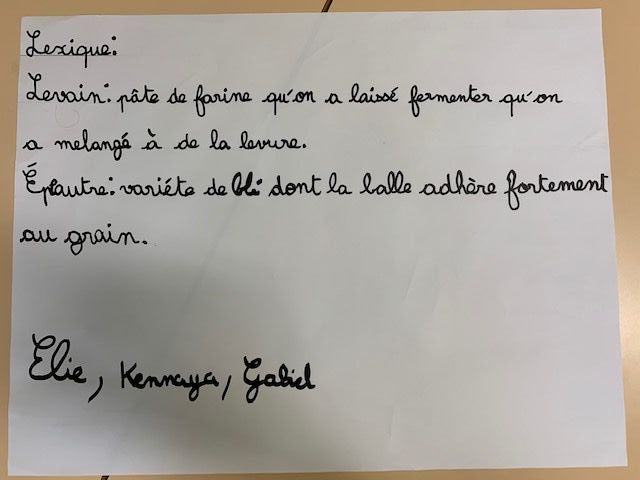 Lexique:
Levain: pâte de farine qu'on a laissé fermenter qu'on
a melangé à de la levure.
Éplautre: variéte de blé dont la balle adhère fortement
au grain.
Elie, Kennaya, Gabiel